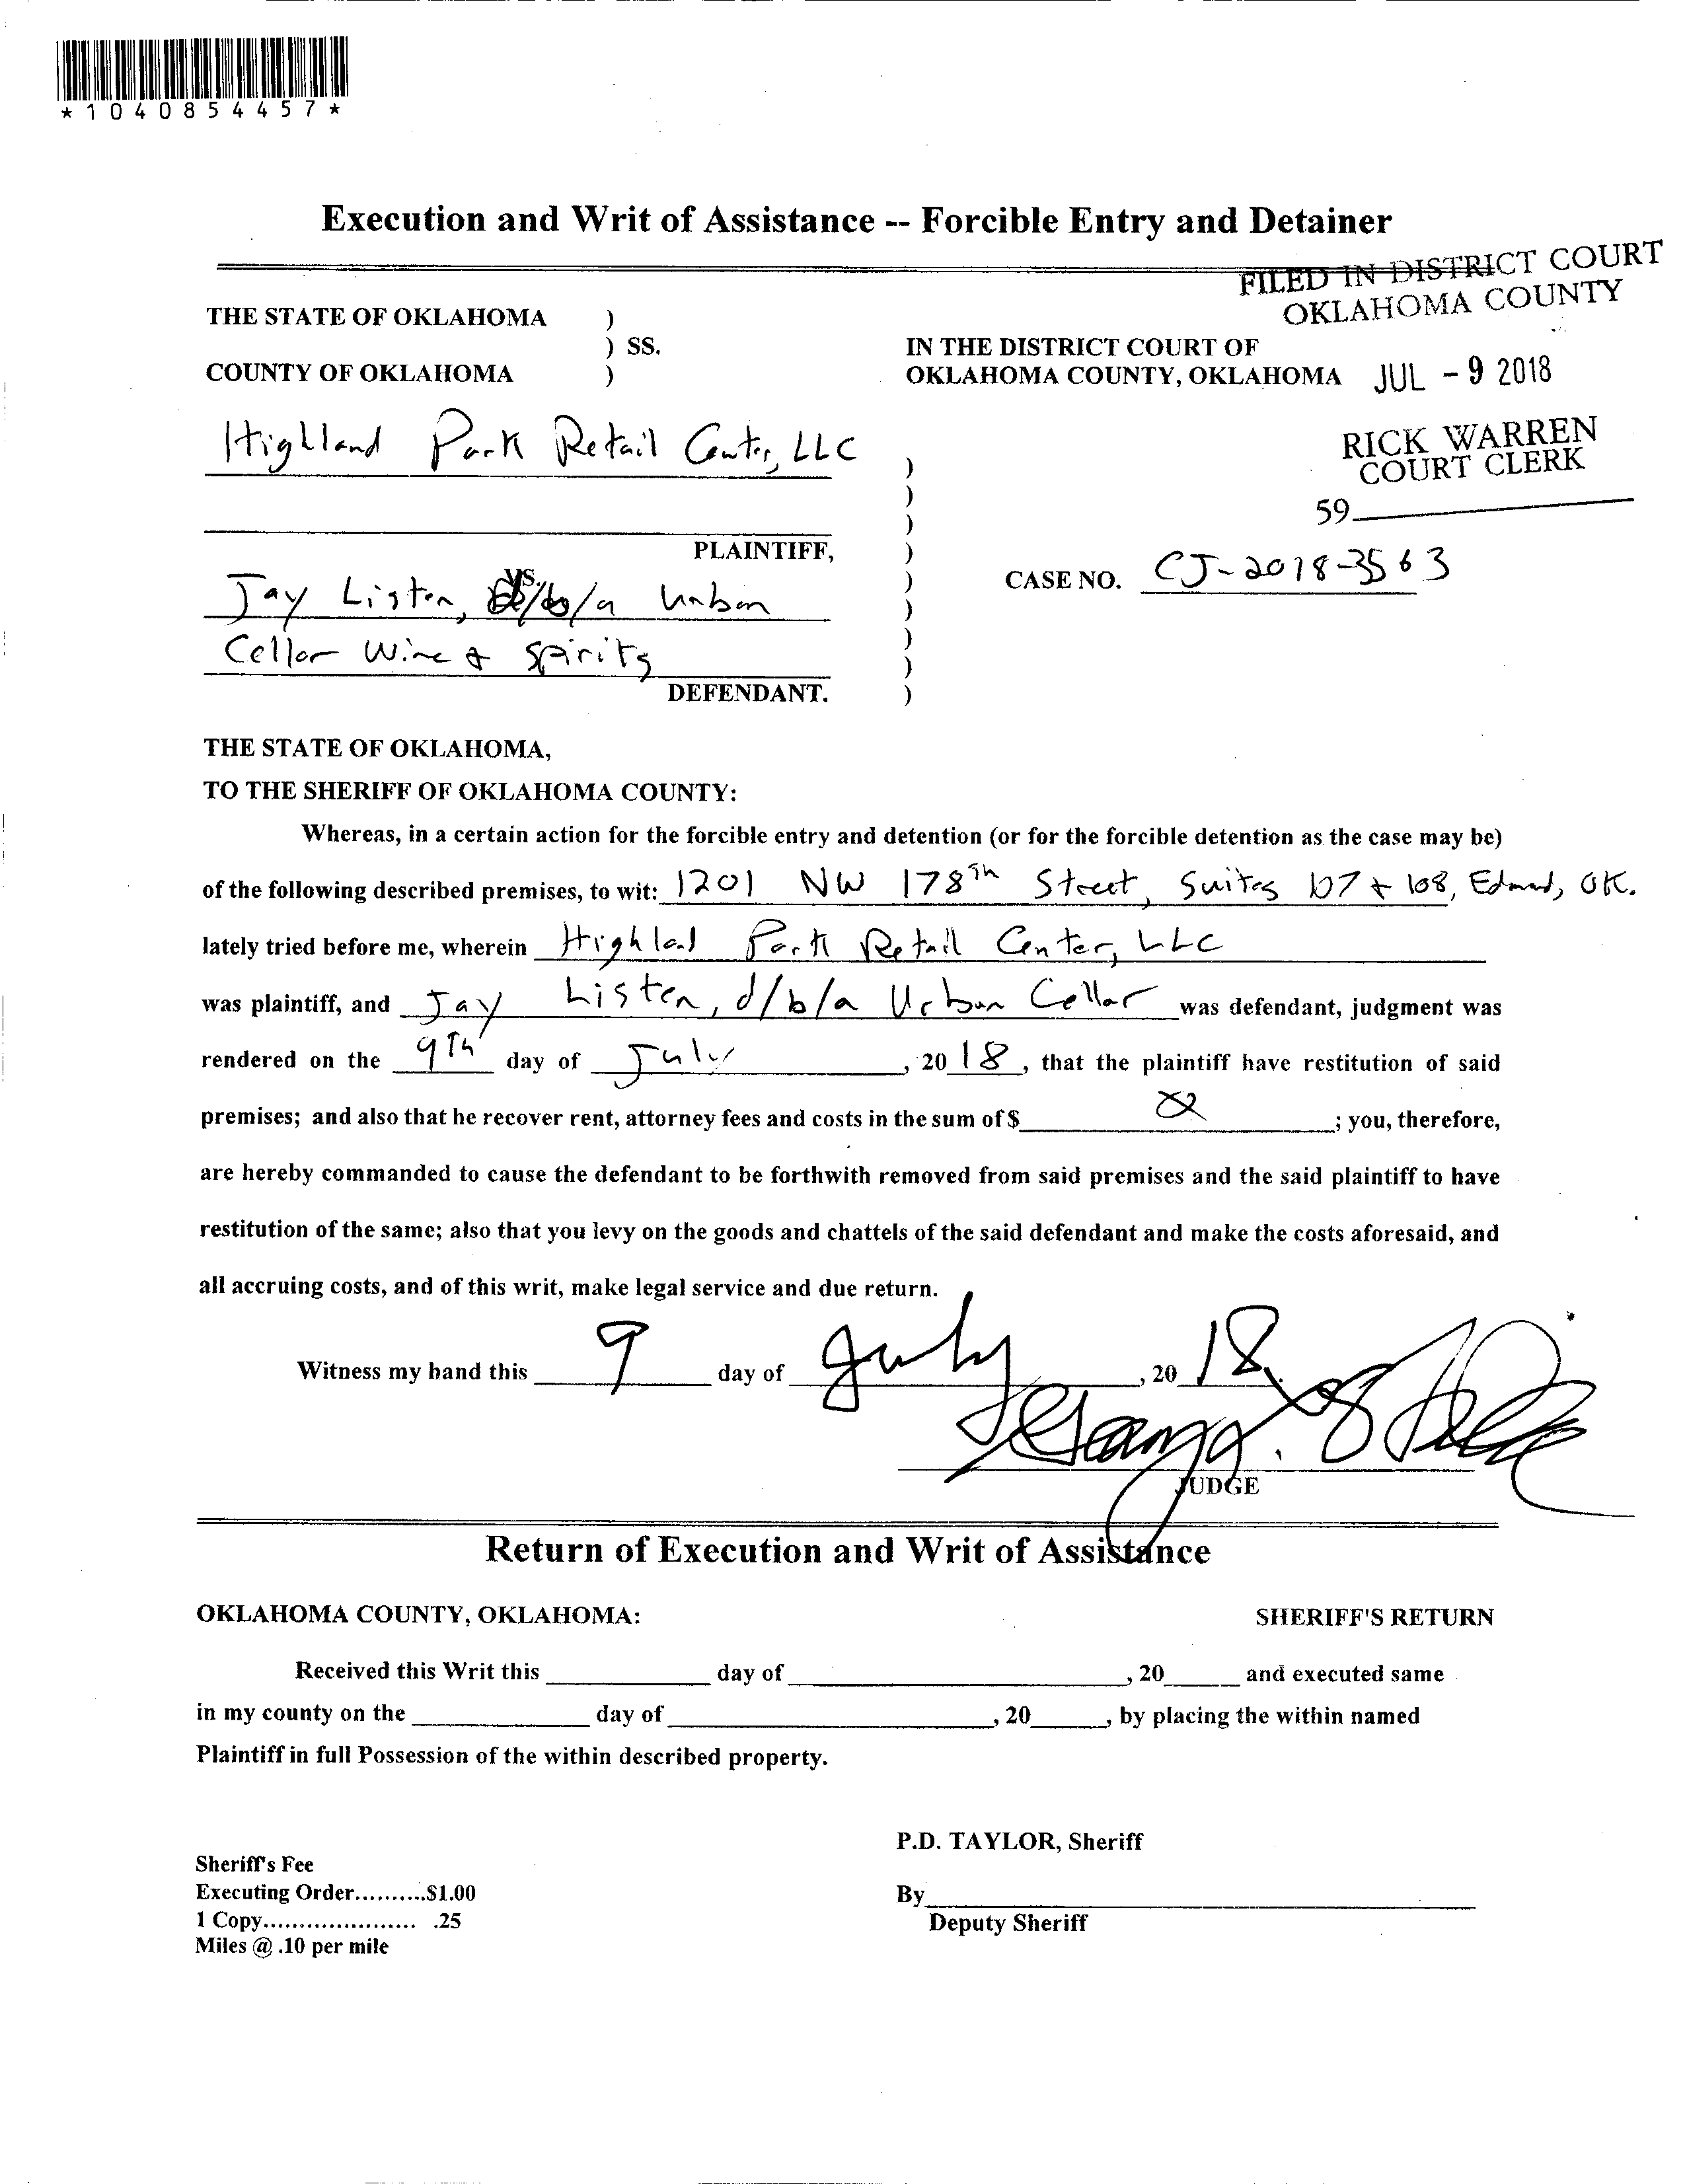 *1040854457*
Execution and Writ of Assistance -- Forcible Entry and Detainer
FILED IN DISTRICT COURT
OKLAHOMA COUNTY
THE STATE OF OKLAHOMA )
) SS.
COUNTY OF OKLAHOMA )
IN THE DISTRICT COURT OF
OKLAHOMA COUNTY, OKLAHOMA
JUL - 9 2018
RICK WARREN
COURT CLERK
59
Highland Park Retail Center, LLC
PLAINTIFF,
vs.
CASE NO. CJ-2018-3563
Jay Listen, d/b/a Urban
Cellar Wine & Spirits
DEFENDANT.
THE STATE OF OKLAHOMA,
TO THE SHERIFF OF OKLAHOMA COUNTY:
Whereas, in a certain action for the forcible entry and detention (or for the forcible detention as the case may be)
of the following described premises, to wit: 1201 NW 178th Street, Suites 107 & 108, Edmond, OK.
lately tried before me, wherein Highland Park Retail Center, LLC
was plaintiff, and Jay Listen, d/b/a Urban Cellar was defendant, judgment was
rendered on the 9th day of July, 2018, that the plaintiff have restitution of said
premises; and also that he recover rent, attorney fees and costs in the sum of $ ; you, therefore,
are hereby commanded to cause the defendant to be forthwith removed from said premises and the said plaintiff to have
restitution of the same; also that you levy on the goods and chattels of the said defendant and make the costs aforesaid, and
all accruing costs, and of this writ, make legal service and due return.
Witness my hand this 9 day of July, 2018.
JUDGE
Return of Execution and Writ of Assistance
OKLAHOMA COUNTY, OKLAHOMA: SHERIFF'S RETURN
Received this Writ this ____ day of ____, 20____ and executed same
in my county on the ____ day of ____, 20____, by placing the within named
Plaintiff in full Possession of the within described property.
P.D. TAYLOR, Sheriff
Sheriff's Fee
Executing Order..........$1.00
1 Copy..................... .25
Miles @ .10 per mile
By____
Deputy Sheriff